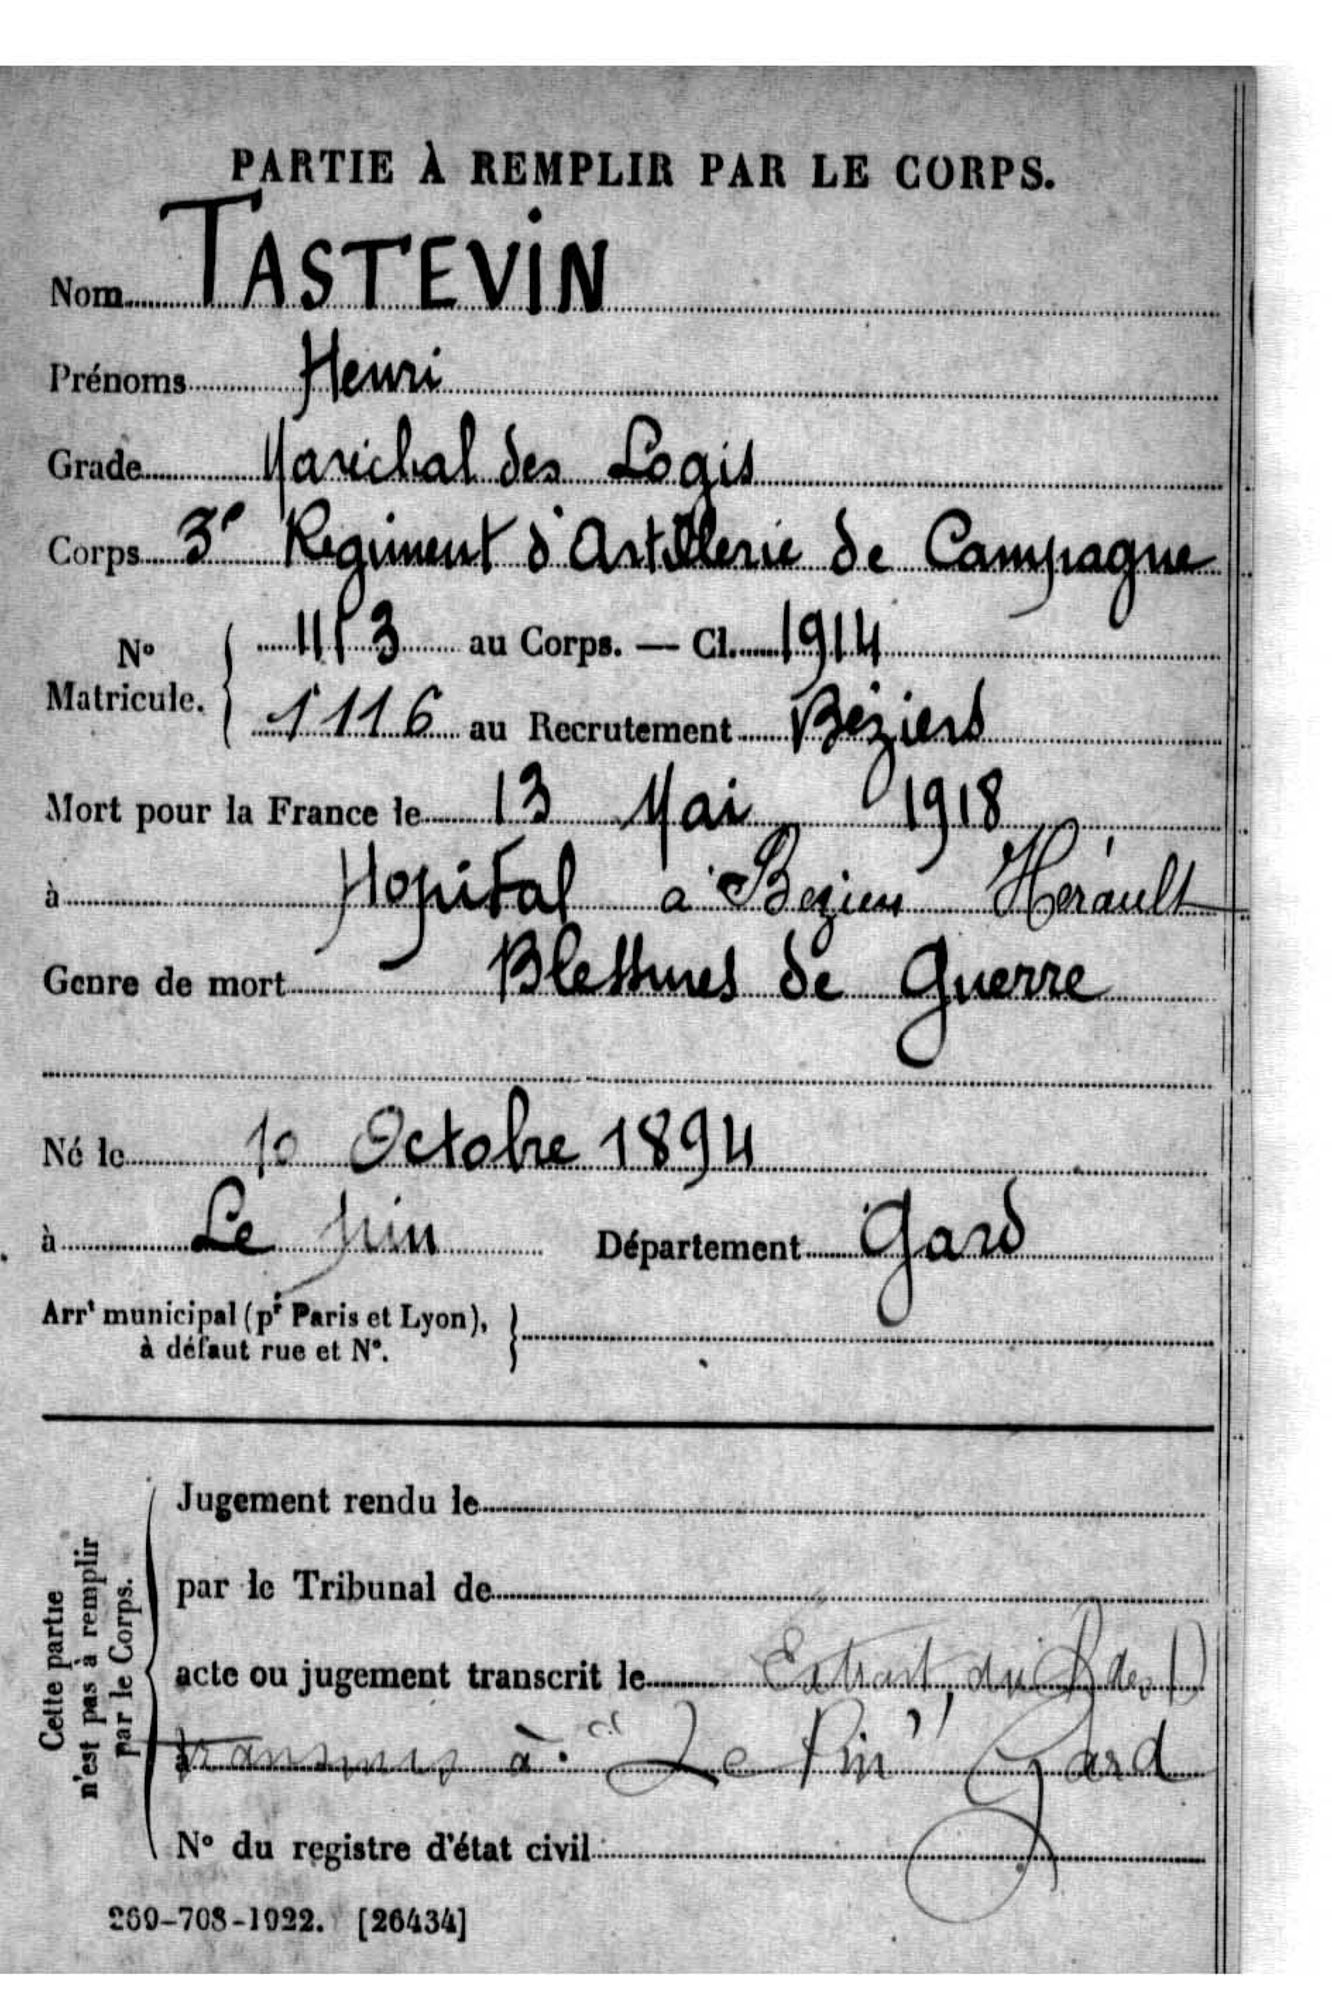 PARTIE À REMPLIR PAR LE CORPS.
Nom TASTEVIN
Prénoms Henri
Grade Maréchal des Logis
Corps 3e Regiment d'Artillerie de Campagne
No Matricule. { 1153 au Corps. — Cl. 1914
1116 au Recrutement Béziers
Mort pour la France le 13 Mai 1918
à Hopital à Beziers Hérault
Genre de mort Blessures de Guerre
Né le 10 Octobre 1894
à Le Pin Département Gard
Arrt municipal (pr Paris et Lyon),
à défaut rue et N°. }
Cette partie
n'est pas à remplir
par le Corps.
Jugement rendu le
par le Tribunal de
acte ou jugement transcrit le Extrait du des D
transmis à "Le Pin" Gard
No du registre d'état civil
269-708-1922. [26434]